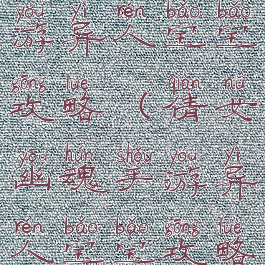 yóu yì rén bǎo bǎo
游异人宝宝
gōng lüè qiàn nǚ
攻略（倩女
yōu hún shǒu yóu yì
幽魂手游异
rén bǎo bǎo gōng lüè
人宝宝攻略